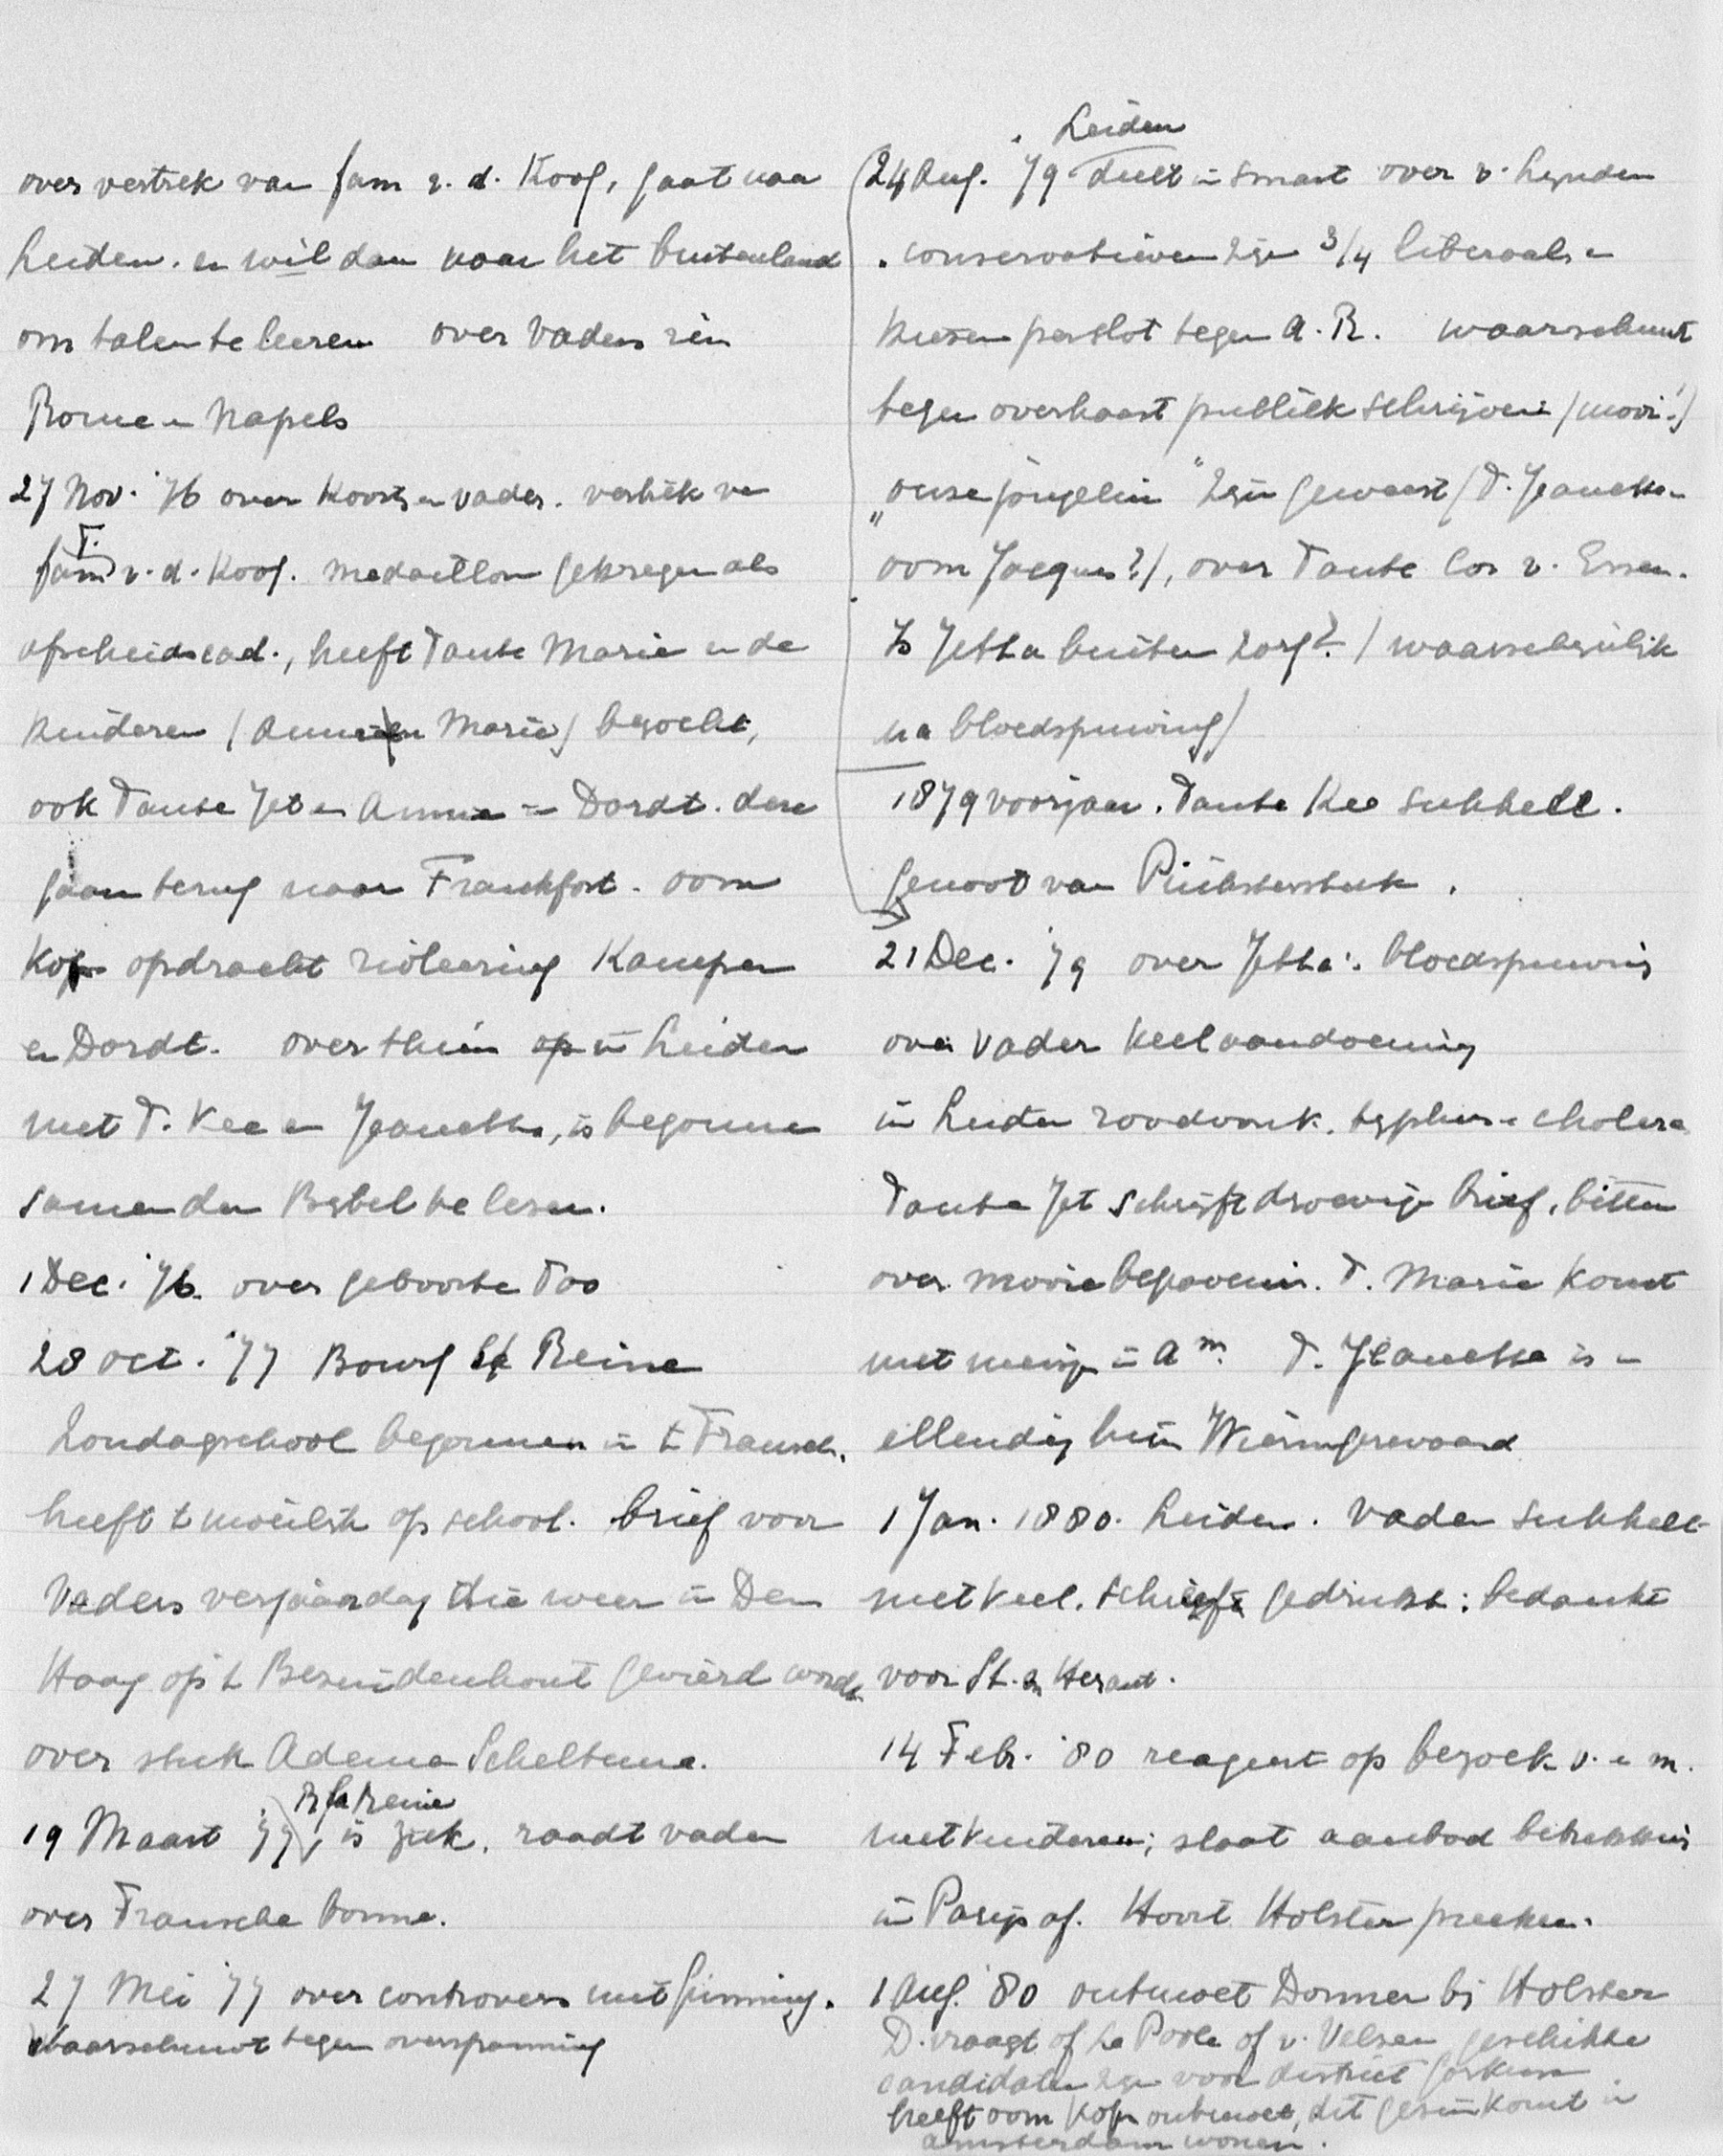 over vertrek van fam v. d. Koog, gaat naar
Leiden. en wil dan naar het buitenland
om talen te leeren over Vaders reis
Rome en Napels
27 Nov. '76 over koorts en vader. vertrek van
T.
fam v. d. Koog. medaillon gekregen als
afscheidscad., heeft Tante Marie en de
kinderen (Annie en Marie) bezocht,
ook Tante Jet en Annie in Dordt. deze
gaan terug naar Frankfort. oom
Kop opdracht rioleering Kampen
en Dordt. over thuis op in Leiden
met T. Kee en Jeanette, is begonnen
samen den Bijbel te lezen.
1 Dec. '76 over geboorte Too
28 oct. '77 Bourg la Reine
Zondagschool begonnen in 't Fransch,
heeft 't moeilijk op school. brief voor
Vaders verjaardag die weer in Den
Haag op 't Bezuidenhout gevierd wordt
over stuk Adema Scheltema.
B la Reine
19 Maart '77, is ziek, raadt vader
over Fransche bonne.
27 Mei '77 over controvers met Gunning.
Waarschuwt tegen overspanning
Leiden
(24 Aug. '79 deelt in smart over v. Lynden
conservatieven zijn 3/4 liberaal en
kiezen per slot tegen A. R. waarschuwt
tegen overhaast publiek schrijven (mooi!)
"onze jongelui" zijn geweest (T. Jeanette en
oom Jacques?), over Tante Cor v. Essen.
Is Jetta buiten zorg? (waarschijnlijk
na bloedspuwing)
1879 voorjaar. Tante Kee sukkelt.
genoot van Pinksterstuk.
21 Dec. '79 over Jetta's bloedspuwing
over Vader keelaandoening
in Leiden roodvonk, typhus en cholera
Tante Jet schrijft droevige brief, bitter
over mooie begrafenis. T. Marie komt
met meisje in Am. T. Jeanette is in
ellendig huis Wieringerwaard
1 Jan. 1880. Leiden. Vader sukkelt
met keel. schrijft gedrukt: bedankt
voor St. en Heraut.
14 Febr. '80 reageert op bezoek v. en m.
met kinderen; slaat aanbod betrekking
in Parijs af. Hoort Holster preeken.
1 Aug. '80 ontmoet Donner bij Holster
D. vraagt of La Poole of v. Velsen geschikte
candidaten zijn voor district Gorkum
heeft oom Kop ontmoet, dit gezin komt in
Amsterdam wonen.